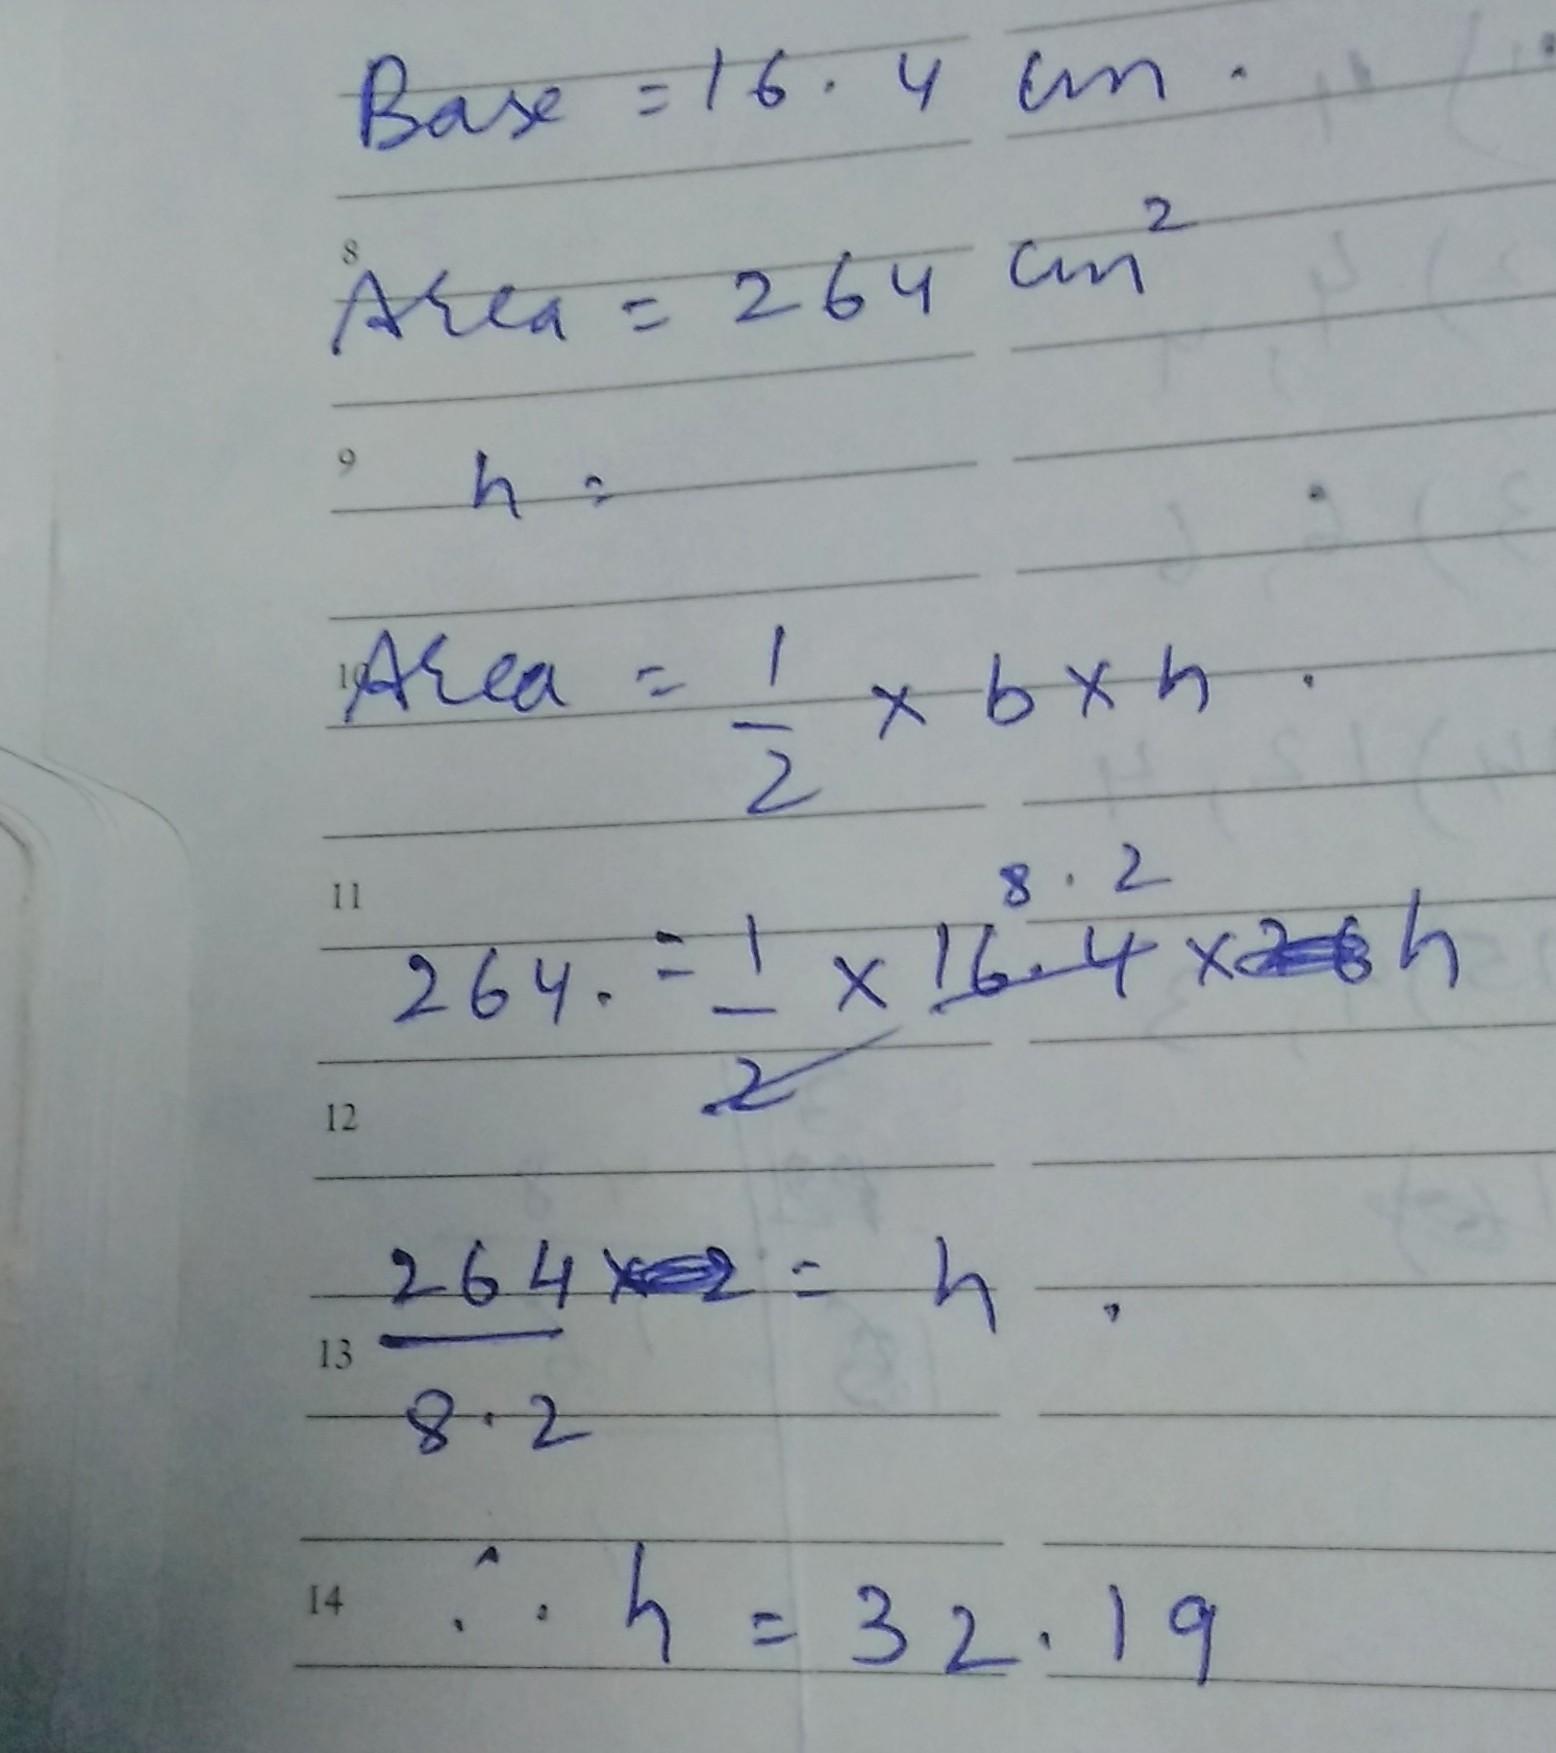 Base = 16.4 cm.
8
Area = 264 cm²
9
h =
10
Area = 1/2 × b × h.
8.2
11
264. = 1/2 × 16.4 × h
12
264/8.2 = h.
13
14
∴ h = 32.19